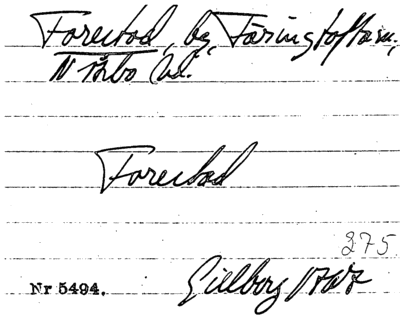 Forestad, by, Färingtofta sn,
N Åsbo hd.
Forestad
275
Nr 5494. Gillberg